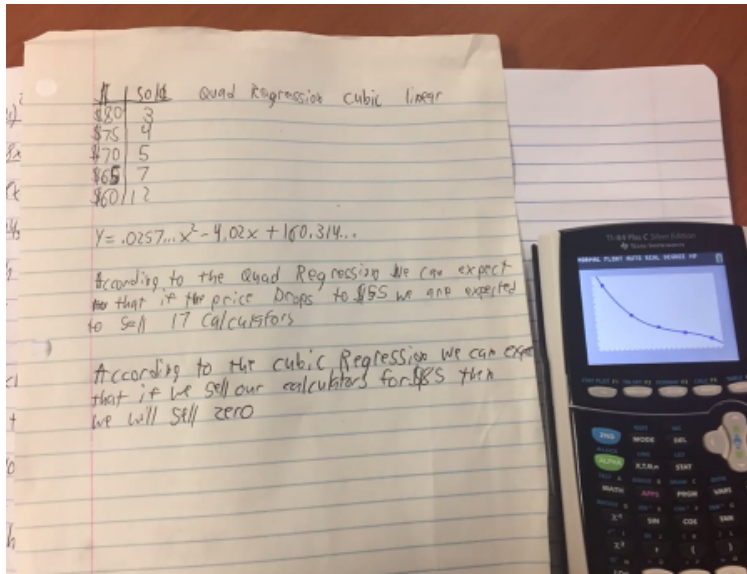 $ sold Quad Regression cubic linear
$80 3
$75 4
$70 5
$65 7
$60 12
Y = .0257...x² - 4.02x + 160.314...
According to the Quad Regression we can expect
that if the price Drops to $55 we are expected
to sell 17 calculators
According to the cubic Regression we can expe
that if we sell our calculators for $85 then
we will sell zero
TI-84 Plus C Silver Edition
TEXAS INSTRUMENTS
NORMAL FLOAT AUTO REAL DEGREE MP
2ND
MODE
DEL
ALPHA
X,T,θ,n
STAT
MATH
APPS
PRGM
VARS
x⁻¹
SIN
COS
TAN
x²
,
(
)